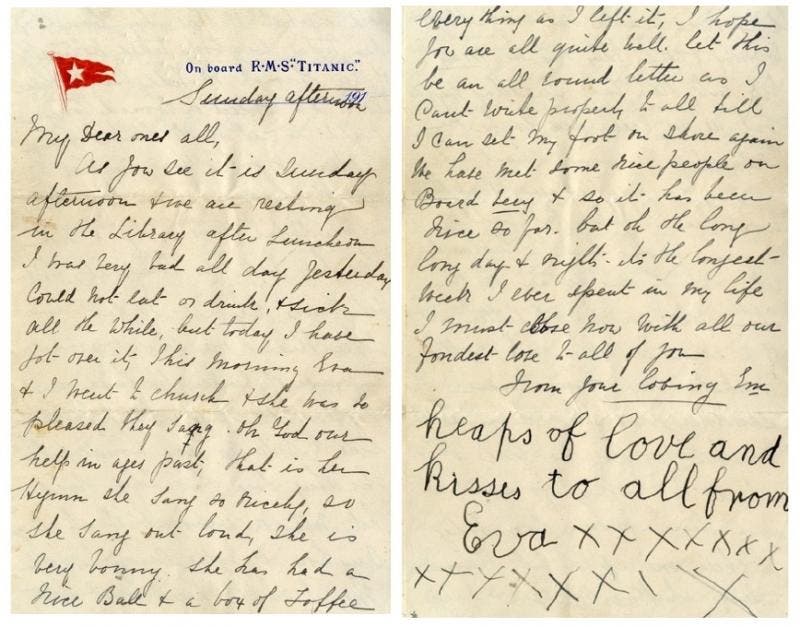 On board R·M·S "TITANIC."
191
Sunday afternoon
My Dear ones all,
As you see it is Sunday
afternoon & we are resting
in the Library after Luncheon
I was very bad all day yesterday
Could not eat or drink, & sick
all the while, but today I have
got over it, This morning Eva
& I went to church & she was so
pleased they sang. oh God our
help in ages past, that is her
Hymn she sang so nicely, so
she sang out loud, she is
very bonny. she has had a
nice Ball & a box of Toffee
everything as I left it, I hope
you are all quite well. let this
be an all round letter as I
Cant write properly to all till
I can set my foot on shore again
We have met some nice people on
Board Lucy & so it has been
nice so far. but oh the long
long day & nights. its the longest
week I ever spent in my life
I must close now with all our
fondest love to all of you
From your loving Em
heaps of love and
kisses to all from
Eva x x x x x x x x
x x x x x x x x x x